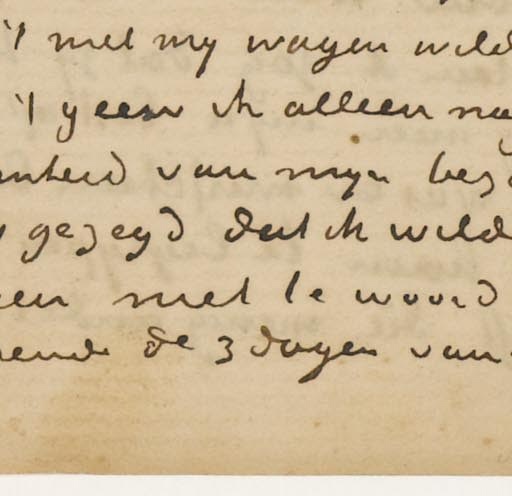 't met my wagen wild
't geen ik alleen na
van myn bez
gezegd dat ik wild
een met te woord
ende de 3 dagen van